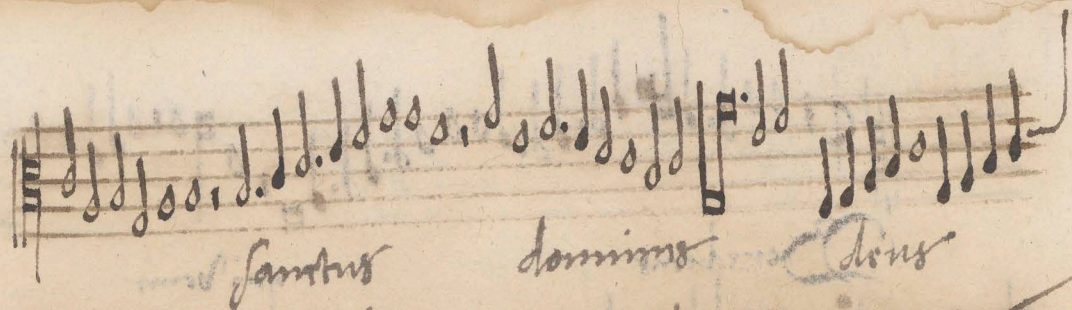 sanctus dominus deus